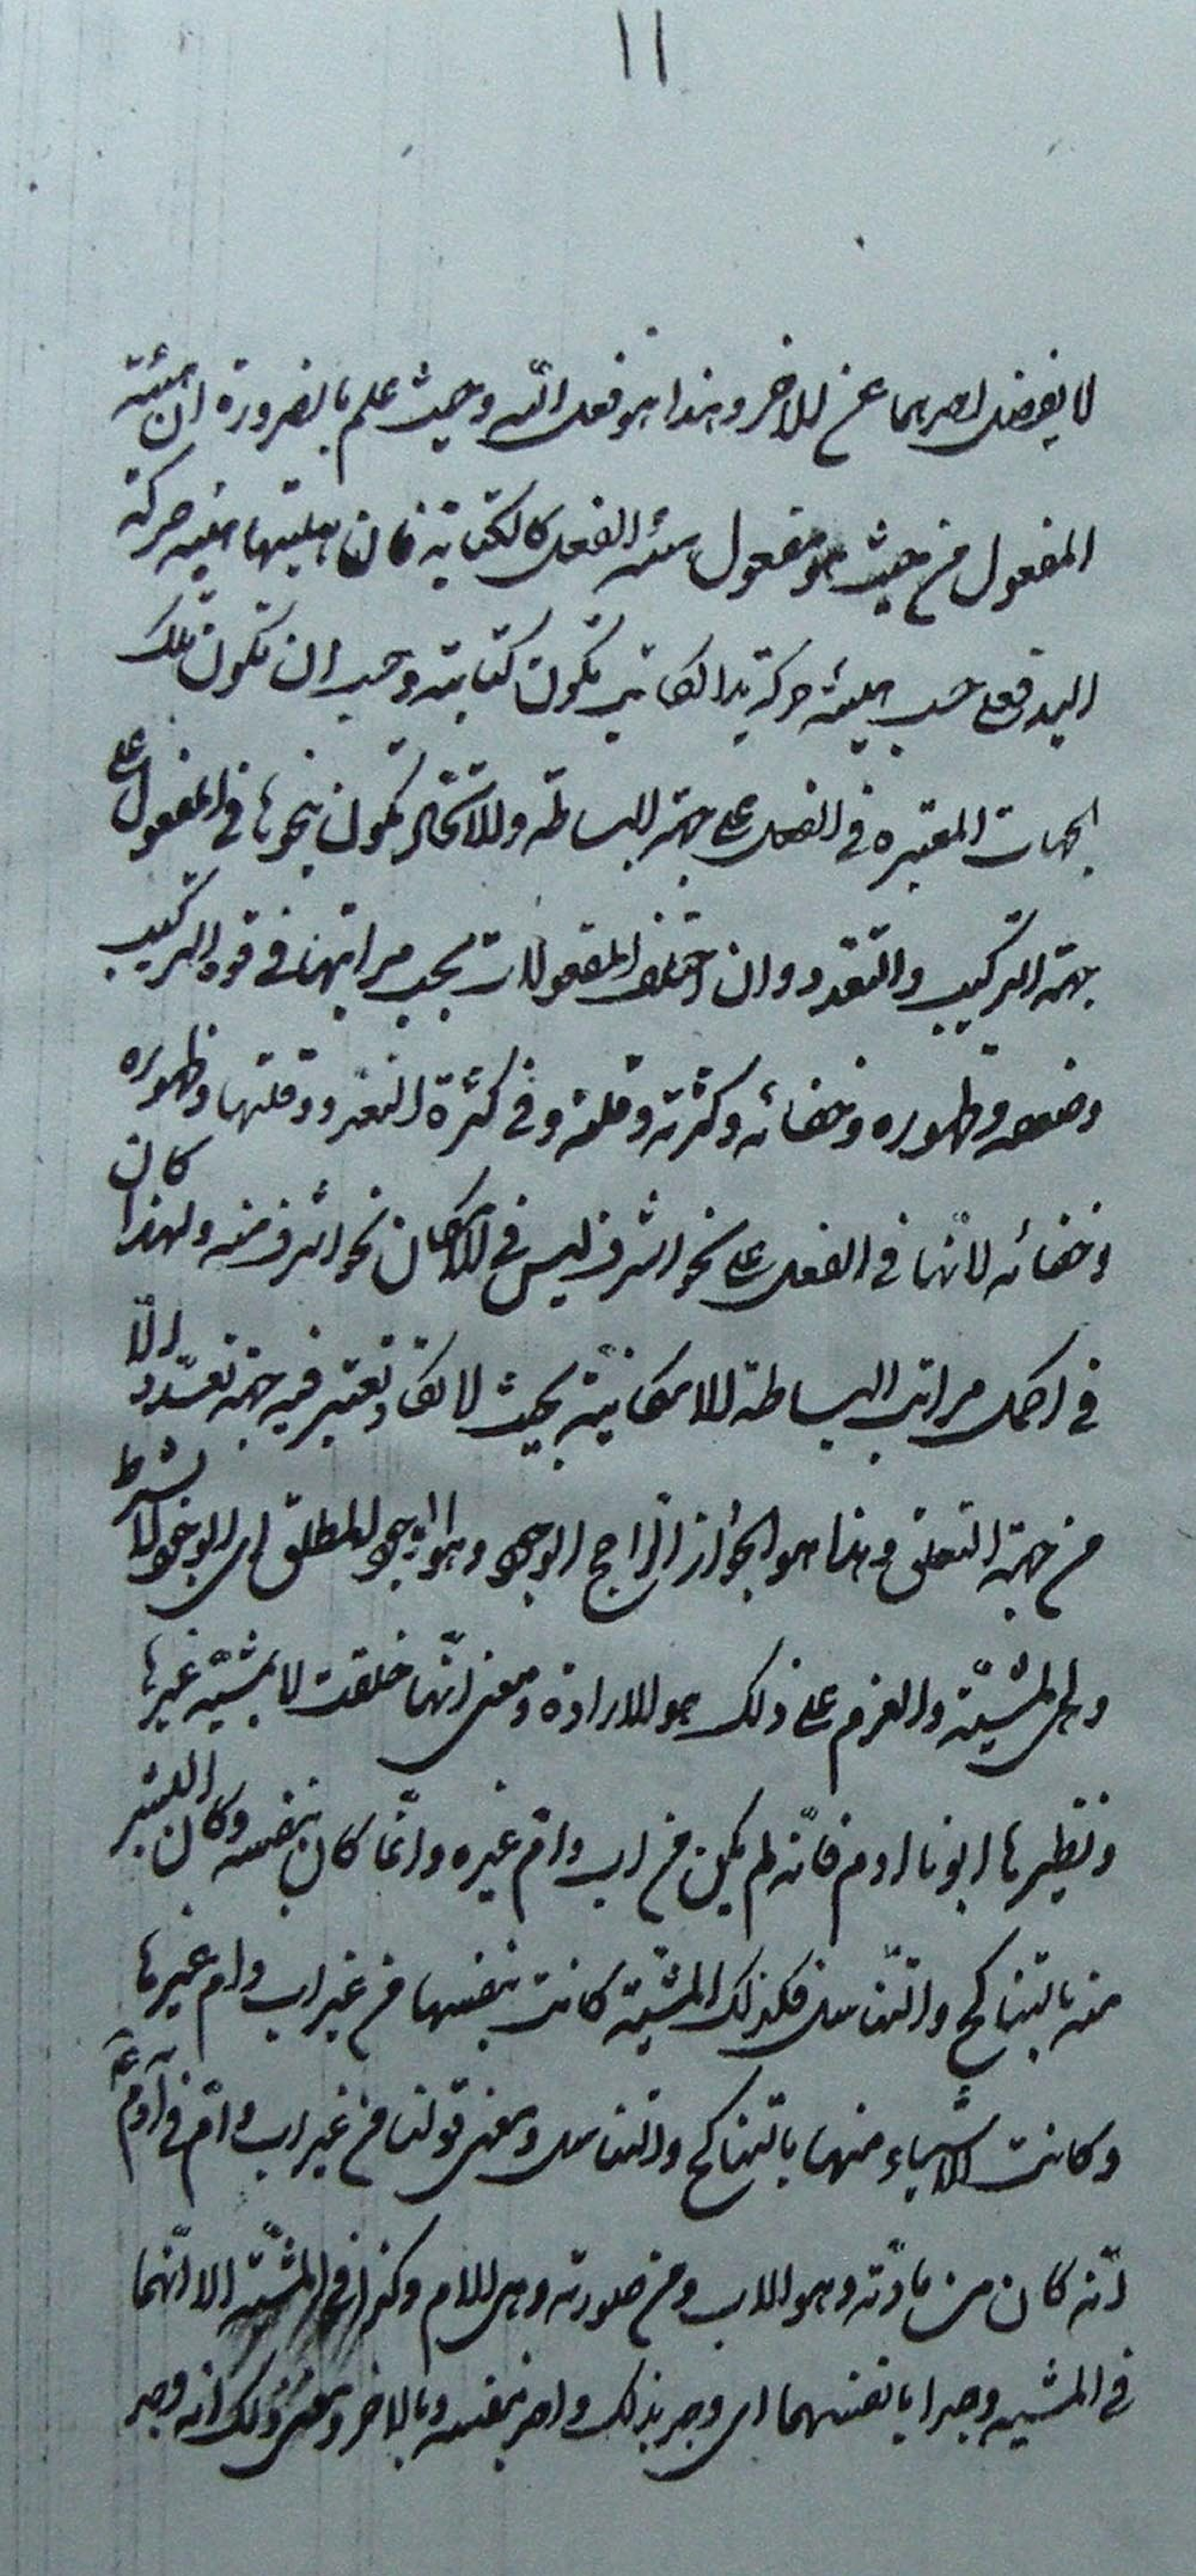 ١١
لا يفضل احدهما عن الاخر وهذا هو فعل الله وحيث علم بالضرورة ان هيئة
المفعول من حيث هو مفعول هيئة الفعل كالكتابة فان هيئتها هيئة حركة
اليد فعلى حسب هيئة حركة يد الكاتب تكون كتابته وجب ان تكون تلك
الجهات المعتبرة في الفعل على جهة البساطة والاتحاد تكون بنحوها في المفعول على
جهة التركيب والتعدد وان اختلف المفعولات بحسب مراتبها في قوة التركيب
وضعفه وظهوره وخفائه وكثرته وقلته وفي كثرة التعدد وقلتها وظهوره
وخفائه لانها في الفعل على نحو اشرف ليس في الامكان نحو اشرف منه ولهذا كان
في اكمل مراتب البساطة الامكانية بحيث لا تكاد تعتبر فيه جهة تعدد الّا
من جهة التعلق وهذا هو الجواز الراجح الوجود وهو الوجود المطلق اي الوجود لا بشرط
وهي المشيّة والعزم على ذلك هو الارادة ومعنى انّها خلقت لا بمشيّة غيرها
ونظيرها ابونا ادم فانّه لم يكن من اب وامّ غيره وانّما كان بنفسه وكان البشر
منه بالتناكح والتناسل فكذلك المشيّة كانت بنفسها من غير اب وام غيرها
وكانت الاشياء منها بالتناكح والتناسل ومعنى قولنا من غير اب وامّ في آدم ع
انّه كان من مادّته وهو الاب ومن صورته وهي الام وكذا في المشيّة الا انّهما
في المشيه وجدا بانفسهما اى وجد بذلك واحد بنفسه وبالاخر ومعنى ذلك انه وجد